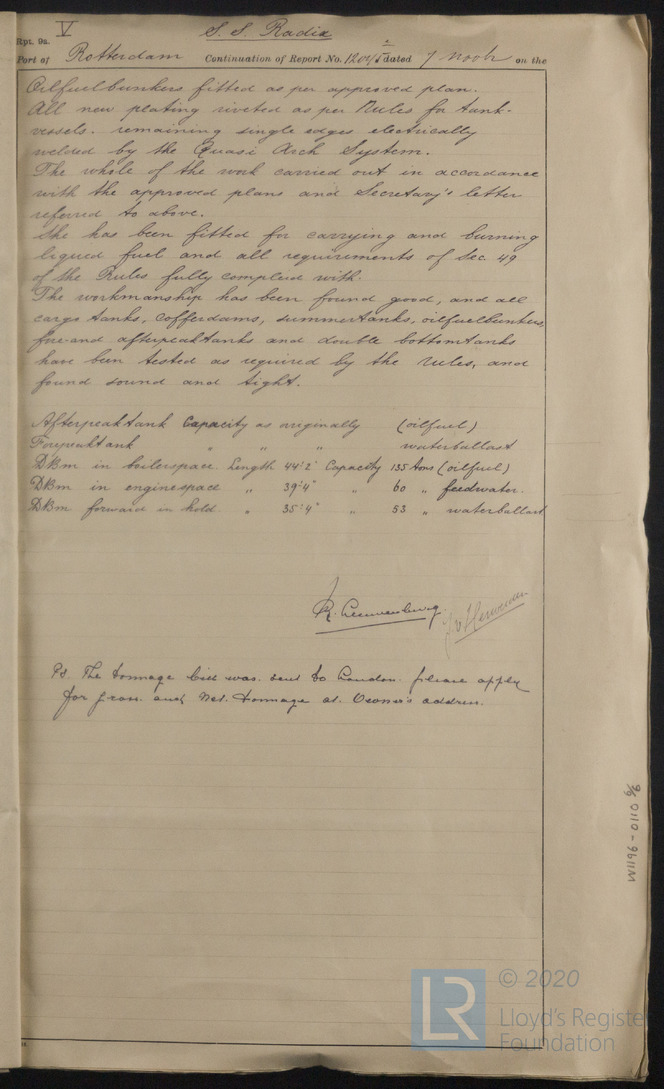 V
S. S. Radix
Rpt. 9a.
Port of Rotterdam Continuation of Report No. dated 7 on the
Oilfuelbunkers fitted as per approved plan.
All new plating riveted as per Rules for tank-
vessels. remaining single edges electrically
welded by the Quasi Arch System.
The whole of the work carried out in accordance
with the approved plans and Secretary's letter
referred to above.
She has been fitted for carrying and burning
liqued fuel and all requirements of Sec. 49
of the Rules fully complied with.
The workmanship has been found good, and all
cargo tanks, cofferdams, summertanks, oilfuelbunkers,
fore and afterpeaktanks and double bottomtanks
have been tested as required by the rules, and
found sound and tight.
Afterpeaktank Capacity as originally (oilfuel)
Forepeaktank " " " waterballast
DBm in boilerspace Length 44'2" Capacity 135 tons (oilfuel)
DBm in enginespace " 39'4" " 60 " feedwater.
DBm forward in hold " 35'4" " 53 " waterballast
Ps The tonnage bill was sent to London please apply
for gross and Net. tonnage at Owner's address.
W1196-0110 9/9
LR
© 2020
Lloyd's Registe
Foundation